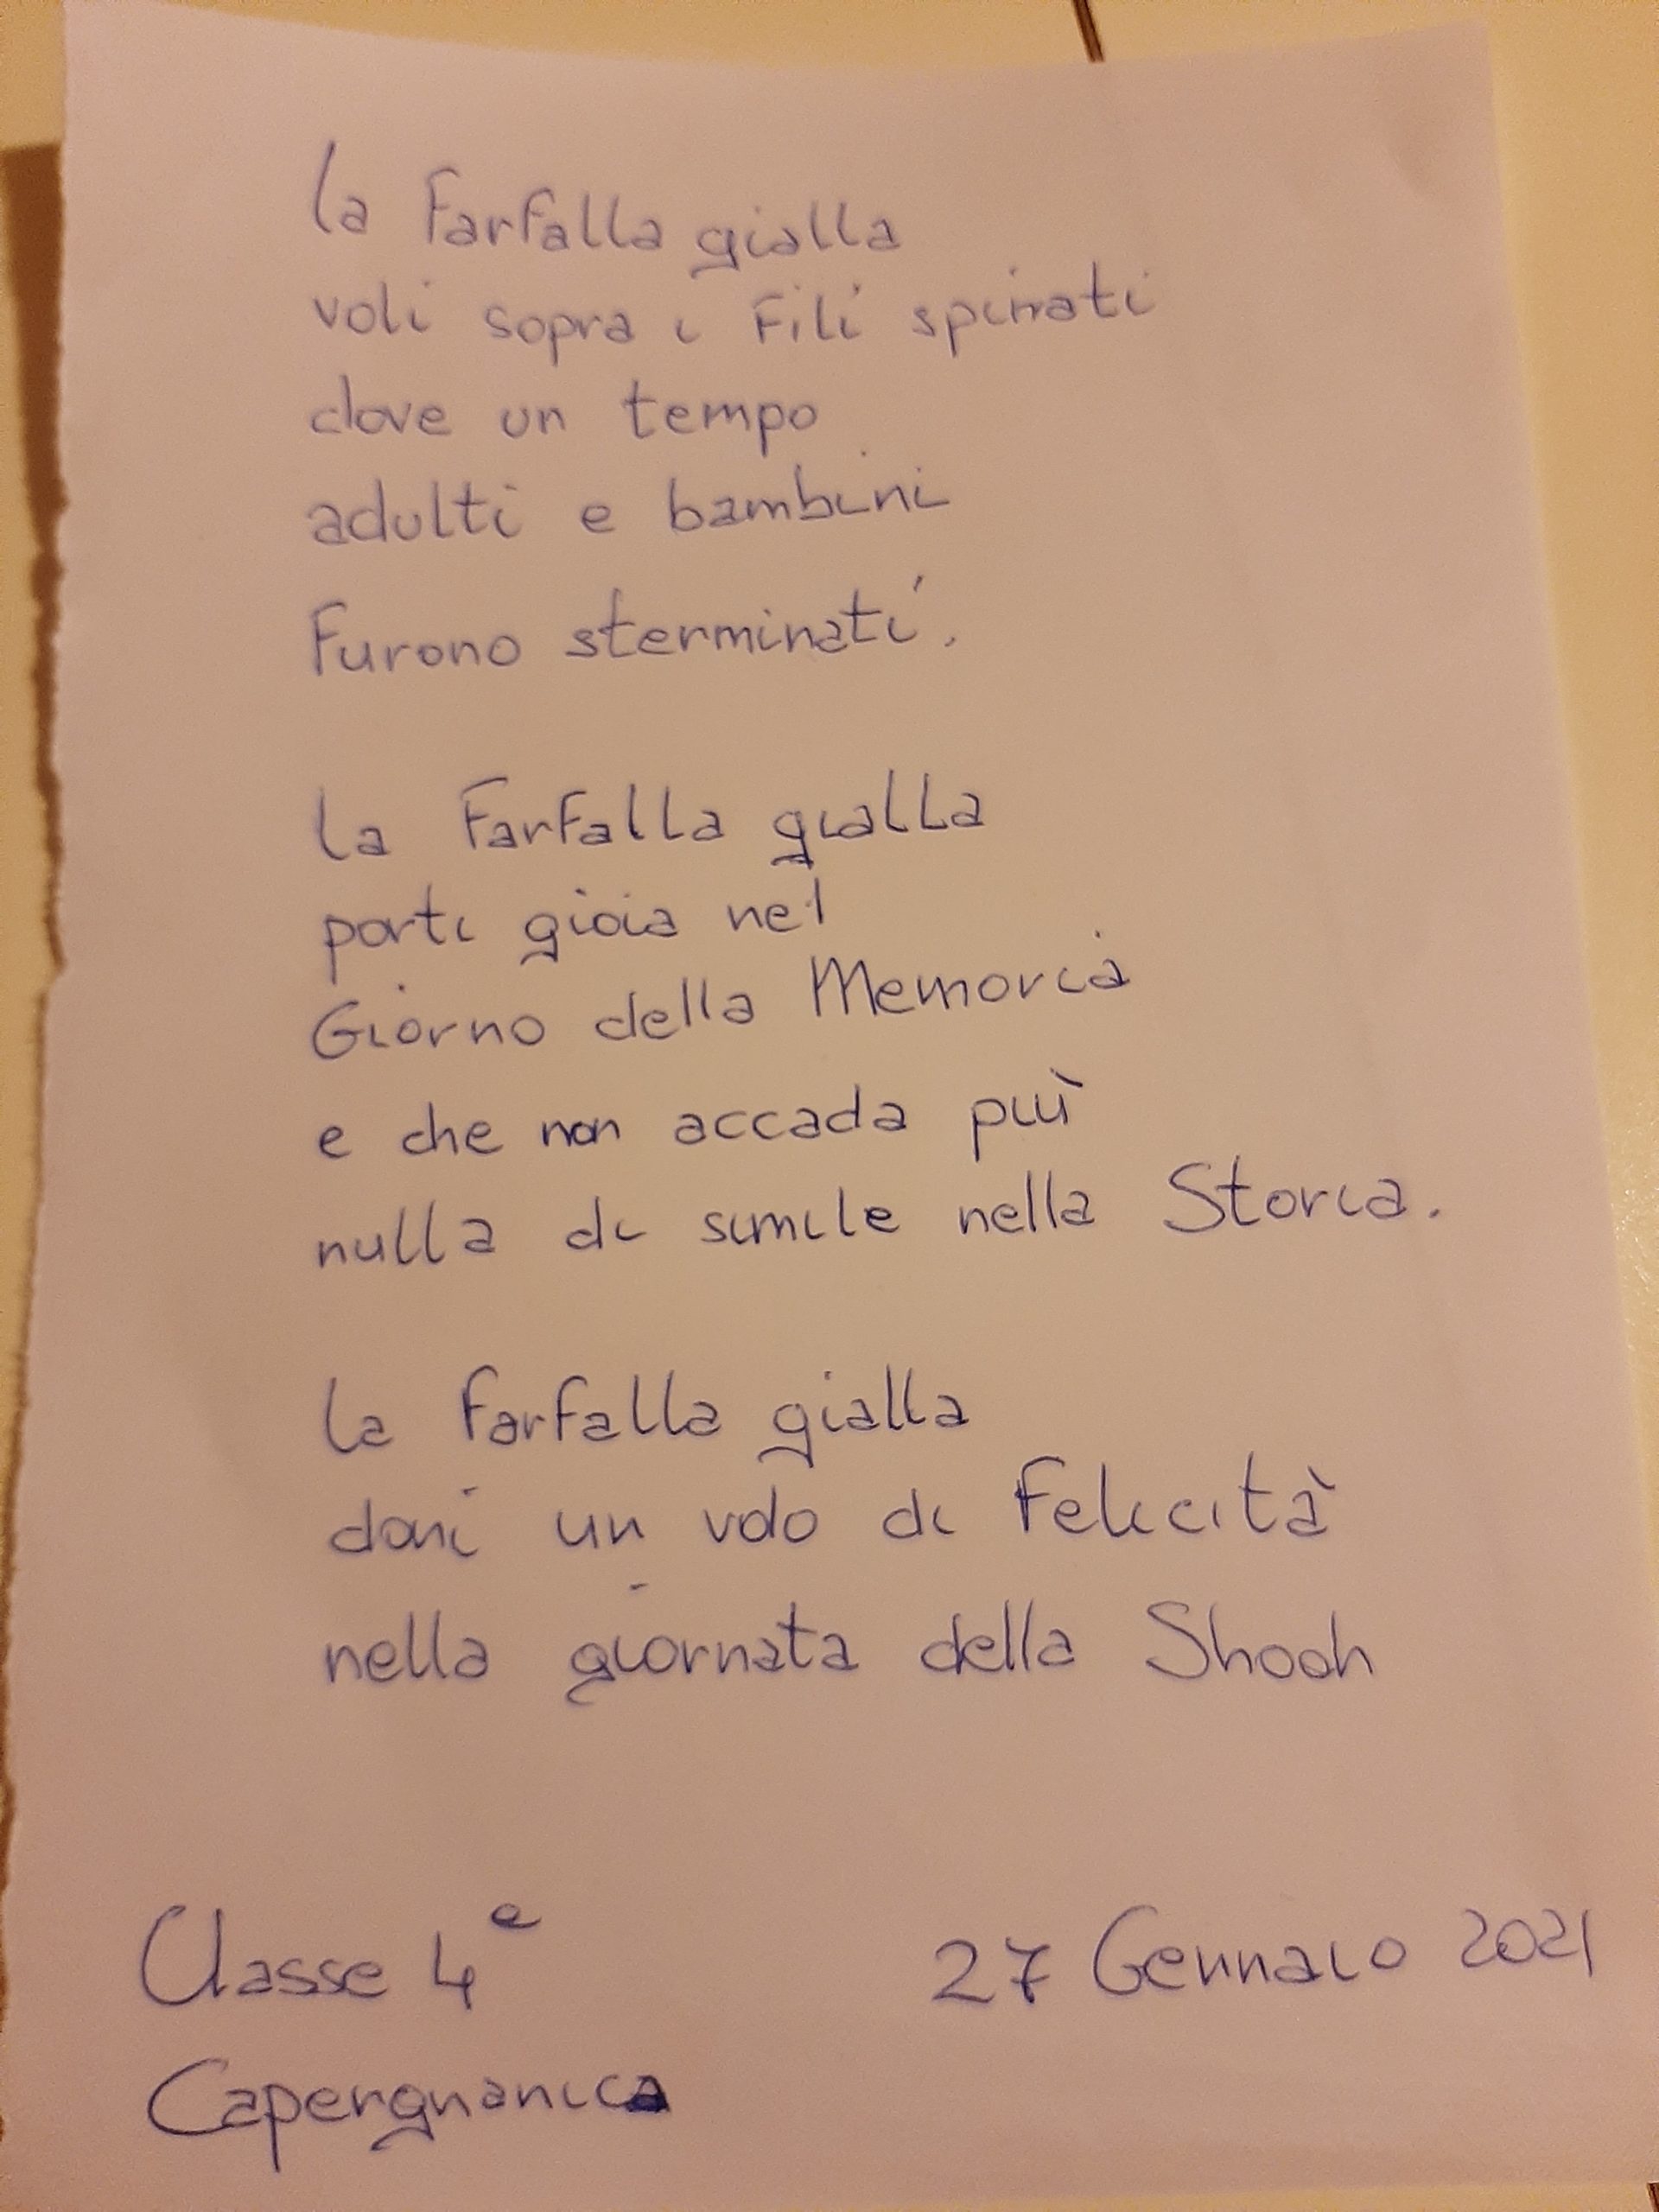 la farfalla gialla
voli sopra i fili spinati
dove un tempo
adulti e bambini
furono sterminati.
la farfalla gialla
porti gioia nel
Giorno della Memoria
e che non accada più
nulla di simile nella Storia.
la farfalla gialla
doni un volo di felicità
nella giornata della Shoah
Classe 4ª
27 Gennaio 2021
Capergnanica